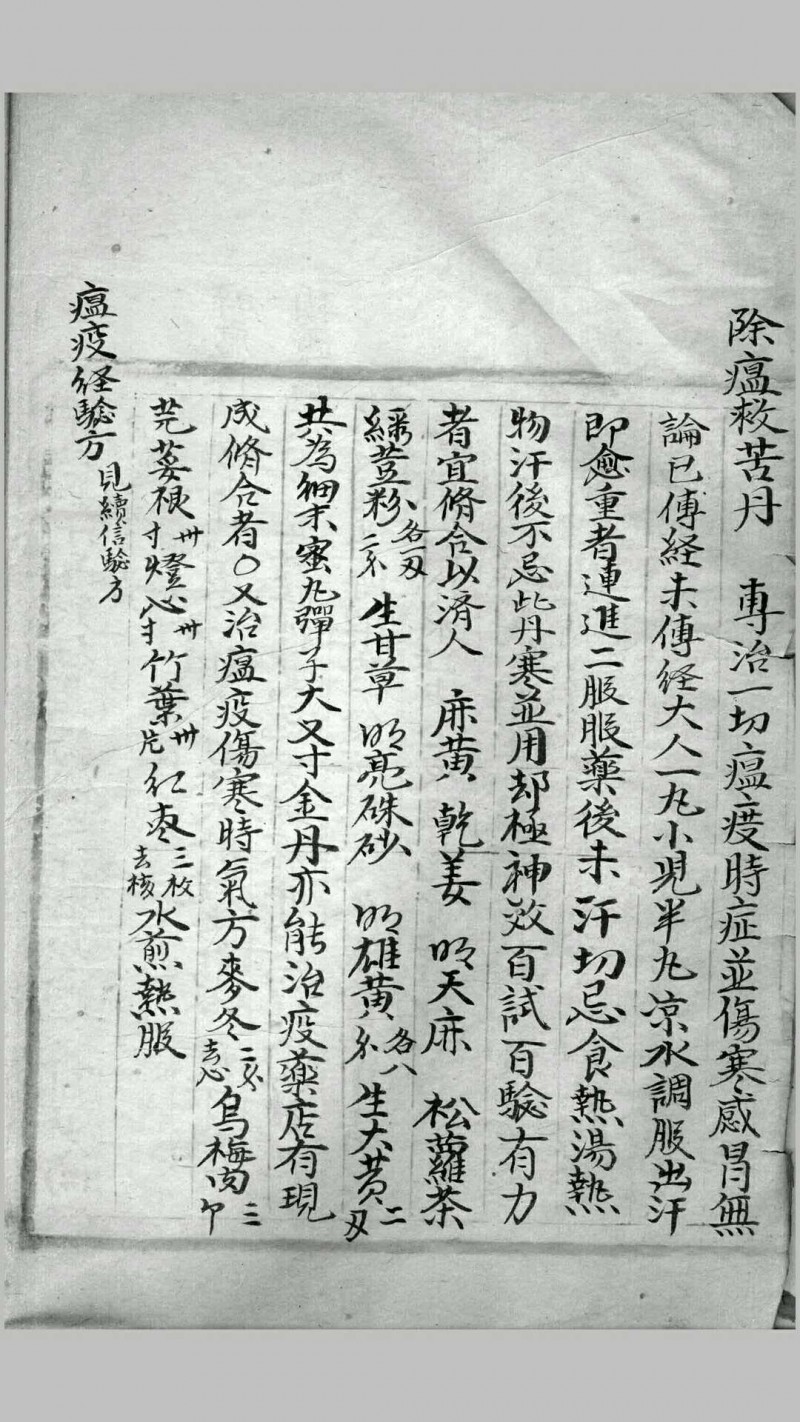 除瘟救苦丹　専治一切瘟疫時症並傷寒感冒無
論已傳経未傳経大人一丸小児半丸凉水調服出汗
即愈重者連進二服服藥後未汗切忌食熱湯熱
物汗後不忌此丹寒並用却極神效百試百驗有力
者宜脩合以済人　麻黄　乾姜　明天麻　松蘿茶
綠荳粉各一刄二分　生甘草　明亮硃砂　明雄黄各八分　生大黄二刄
共為細末蜜丸彈子大又寸金丹亦能治疫藥店有現
成脩合者○又治瘟疫傷寒時氣方麥冬三分去心烏梅肉三个
芫荽根卅寸燈心卅寸竹葉卅片红枣三枚去核水煎熱服
瘟疫経驗方　見續信驗方